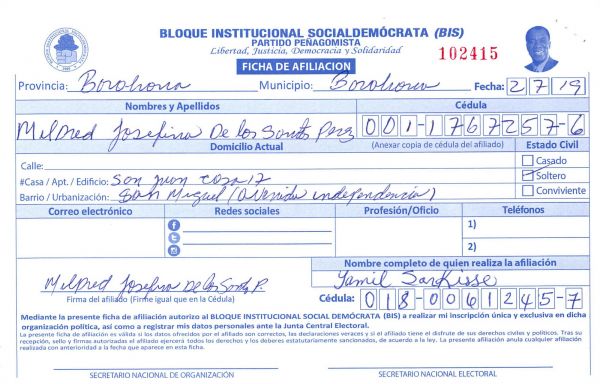 BLOQUE INSTITUCIONAL SOCIALDEMÓCRATA (BIS)
PARTIDO PEÑAGOMISTA
Libertad, Justicia, Democracia y Solidaridad
102415
FICHA DE AFILIACION
Provincia: Barahona Municipio: Barahona Fecha: 2 7 19
Nombres y Apellidos Cédula
Mildred Josefina De los Santos Perez 001-1767257-6
Domicilio Actual (Anexar copia de cédula del afiliado) Estado Civil
Calle: Casado
#Casa / Apt. / Edificio: San Juan Casa 17 Soltero
Barrio / Urbanización: San Miguel (Avenida independencia) Conviviente
Correo electrónico Redes sociales Profesión/Oficio Teléfonos
1)
2)
Nombre completo de quien realiza la afiliación
Mildred Josefina De los Santos P. Yamil Sarkisse
Firma del afiliado (Firme igual que en la Cédula) Cédula: 018-0061245-7
Mediante la presente ficha de afiliación autorizo al BLOQUE INSTITUCIONAL SOCIAL DEMÓCRATA (BIS) a realizar mi inscripción única y exclusiva en dicha
organización política, así como a registrar mis datos personales ante la Junta Central Electoral.
La presente ficha de afiliación es válida si los datos ofrecidos por el afiliado son correctos, las declaraciones veraces y si el afiliado tiene el disfrute de sus derechos civiles y políticos. Tras su
recepción, sello y firmas autorizadas el afiliado ejercerá todos los derechos y los deberes estatutariamente sancionados, de acuerdo a la ley. La presente afiliación anula cualquier afiliación
realizada con anterioridad a la fecha que aparece en esta ficha.
SECRETARIO NACIONAL DE ORGANIZACIÓN SECRETARIO NACIONAL ELECTORAL